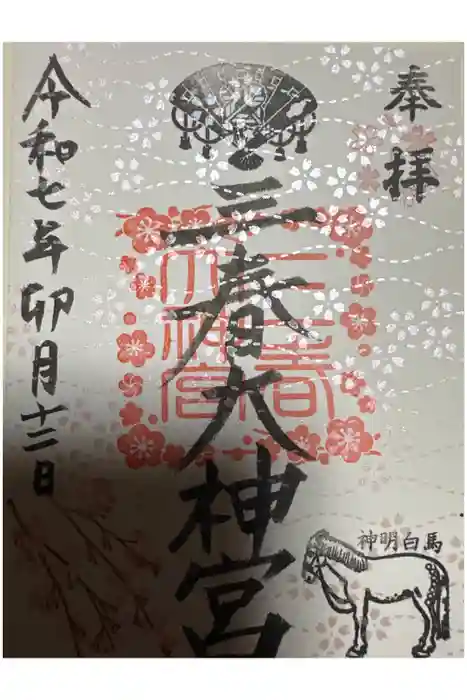 奉拝
三春大神宮
三春大神宮
令和七年卯月十二日
神明白馬